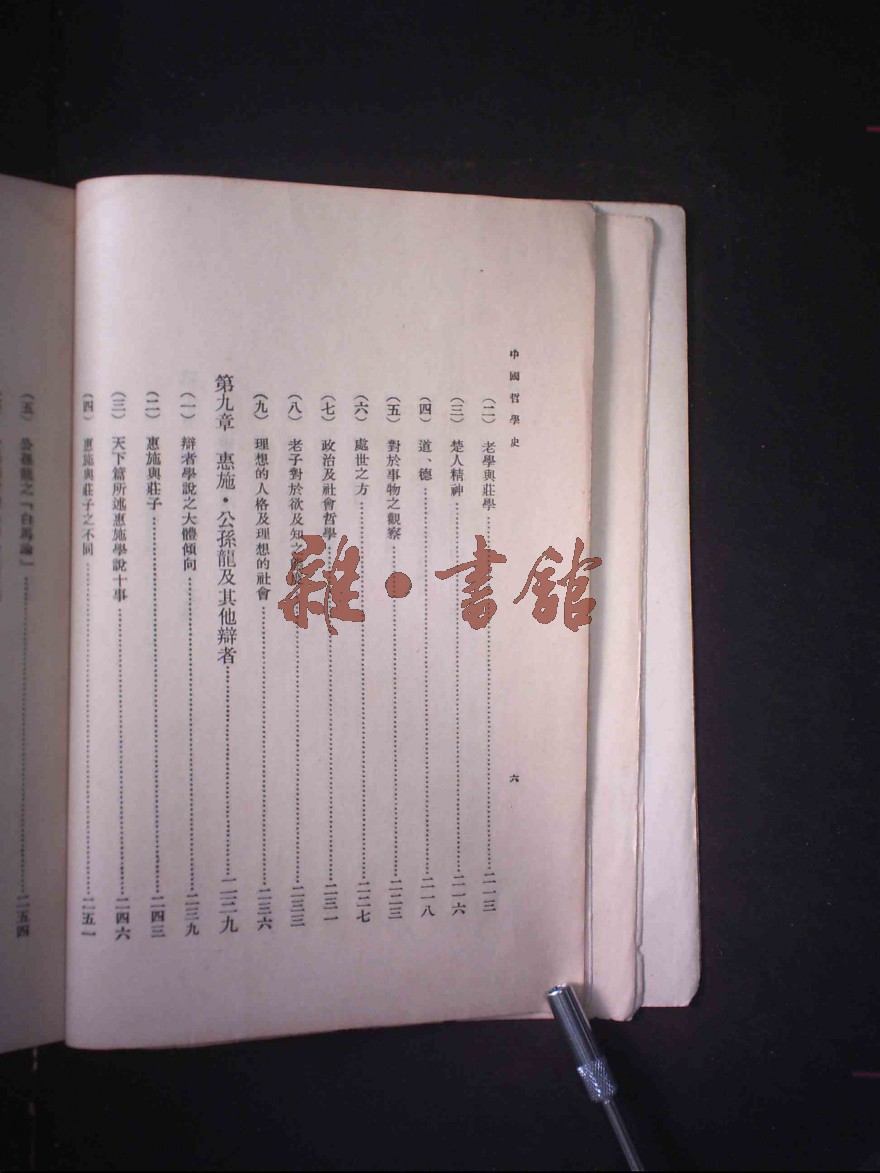 中國哲學史
六
（二）　老學與莊學……二一三
（三）　楚人精神……二一六
（四）　道、德……二一八
（五）　對於事物之觀察……二二三
（六）　處世之方……二二七
（七）　政治及社會哲學……二三一
（八）　老子對於欲及知之……二三三
（九）　理想的人格及理想的社會……二三六
第九章　惠施・公孫龍及其他辯者……二三九
（一）　辯者學說之大體傾向……二三九
（二）　惠施與莊子……二四三
（三）　天下篇所述惠施學說十事……二四六
（四）　惠施與莊子之不同……二五一
（五）　公孫龍之「白馬論」……二五四
雜・書館